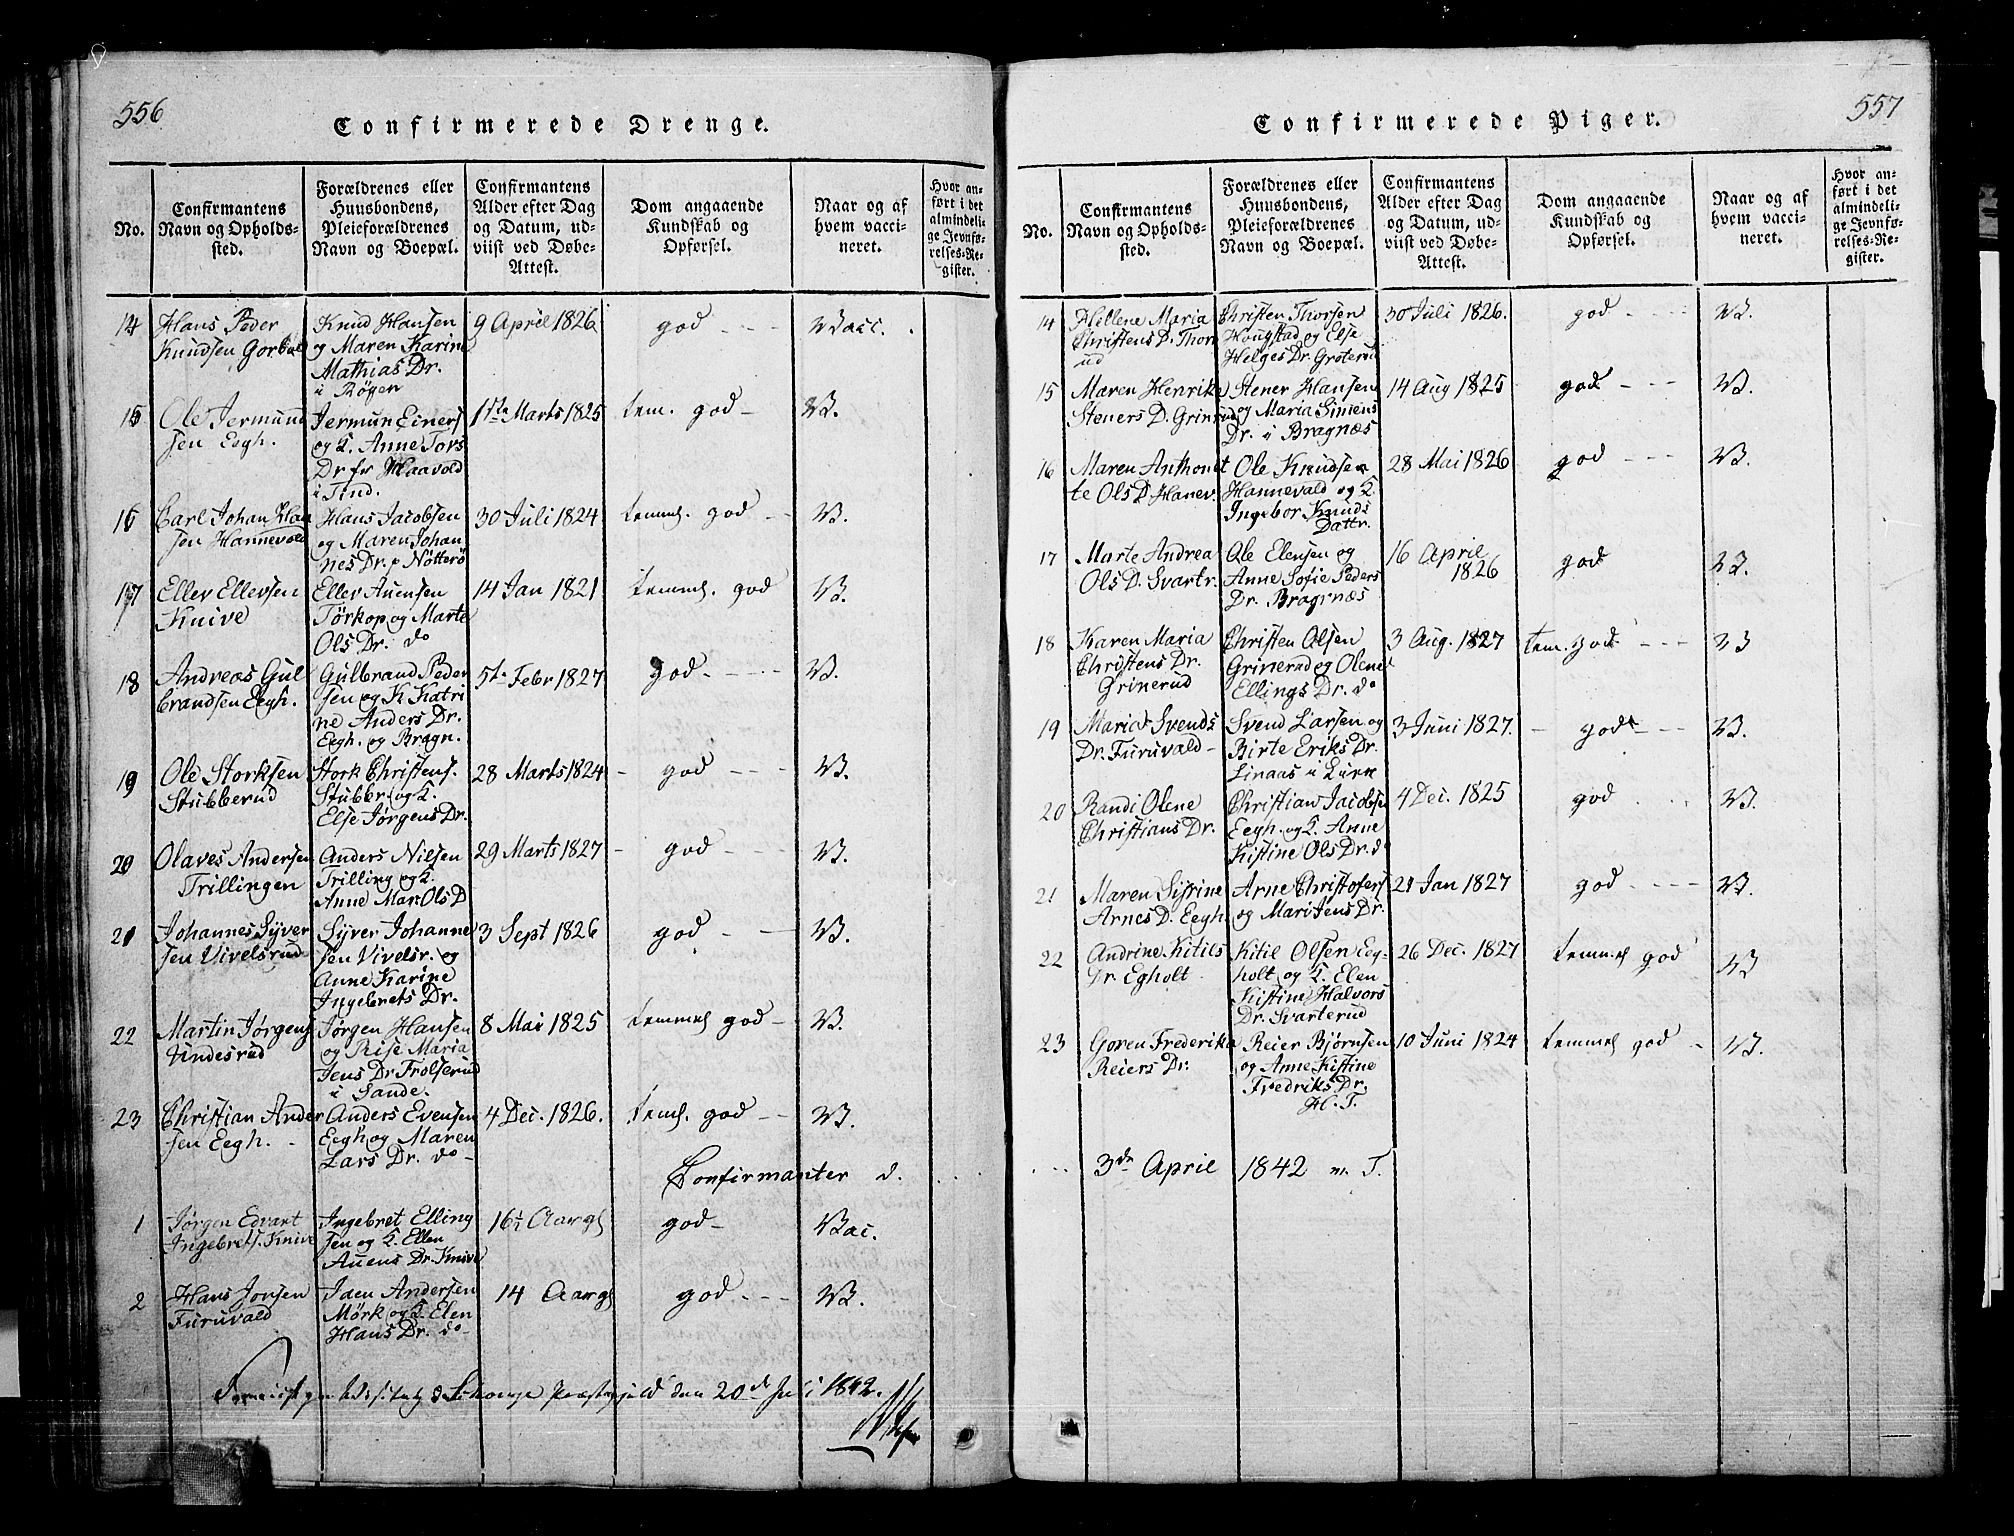 556
Confirmerede Drenge.
No.
Confirmantens
Navn og Opholds-
sted.
Forældrenes eller
Huusbondens,
Pleieforældrenes
Navn og Boepæl.
Confirmantens
Alder efter Dag
og Datum, ud-
viist ved Døbe-
Attest.
Dom angaaende
Kundskab og
Opførsel.
Naar og af
hvem vacci-
neret.
Hvor an-
ført i det
almindeli-
ge Jevnfø-
relses-Re-
gister.
14
Hans Peder
Knudsen
Knud Hansen
og Maren Karine
Mathias Dr.
i Røgen
9 April 1826
god
Vacc.
15
Ole Jermund
sen Eegh.
Jermun Einers
og K. Anne Tors
Dr fr Haavold
i Tind.
1ste Marts 1825
tem. god
V.
16
Carl Johan Han
sen Hannevold
Hans Jacobsen
og Maren Johan
nes Dr. p Nøtterø
30 Juli 1824
temmel. god
V.
17
Ellev Ellevsen
Knive
Ellev Auensen
Törkop og Marte
Ols Dr. do
14 Jan 1821
temmel. god
V.
18
Andreas Gul
brandsen Eegh.
Gulbrand Peder
sen og K Katri
ne Anders Dr.
Eegh. og Bragn.
5te Febr 1827
god
V.
19
Ole Storksen
Stubberud
Stork Christens.
Stubbr. og K.
Else Jørgens Dr.
28 Marts 1824
god
V.
20
Olaves Andersen
Trillingen
Anders Nilsen
Trilling og K.
Anne Mar. Ols D
29 Marts 1827
god
V.
21
Johannes Syver
sen Vivelsrud
Syver Johanne
sen Vivelsr. og
Anne Karine
Ingebrets Dr.
3 Sept 1826
god
V.
22
Martin Jørgens
Undesrud
Jørgen Hansen
og Rise Maria
Jens Dr Frolserud
i Sande.
8 Mai 1825
temmel god
V.
23
Christian Ander
sen Eegh.
Anders Evensen
Eegh og Maren
Lars Dr. do
4 Dec. 1826.
teml. god
V.
Confirmanter d.
1
Jørgen Edvart
Ingebrets. Knive
Ingebret Elling
sen og K. Ellen
Auens Dr. Knive
16½ Aar gl
god
Vac.
2
Hans Jonsen
Furuvald
Jaen Andersen
Mörk og K. Elen
Hans Dr. do
14 Aar gl
god
V.
den 20de Juli 1842.
557
Confirmerede Piger.
No.
Confirmantens
Navn og Opholds-
sted.
Forældrenes eller
Huusbondens,
Pleieforældrenes
Navn og Boepæl.
Confirmantens
Alder efter Dag
og Datum, ud-
viist ved Døbe-
Attest.
Dom angaaende
Kundskab og
Opførsel.
Naar og af
hvem vacci-
neret.
Hvor an-
ført i det
almindeli-
ge Jevnfø-
relses-Re-
gister.
14
Hellene Maria
Christens D. Thor
ud
Christen Thorsen
Hougstad og Else
Helges Dr. Groterud
30 Juli 1826.
god
V.
15
Maren Henrike
Steners D. Grinrud
Stener Hansen
og Maria Simens
Dr. i Bragnæs
14 Aug 1825
god
V.
16
Maren Anthonet
te Ols D. Hanev.
Ole Knudsen
Hannevald og K.
Ingebor Knuds
Dattr.
28 Mai 1826
god
V.
17
Marte Andrea
Ols D. Svartr.
Ole Elensen og
Anne Sofie Peders
Dr. Bragnæs
16 April
1826
god
V.
18
Karen Maria
Christens Dr.
Grinerud
Christen Olsen
Grinerud og Olene
Ellings Dr. do
3 Aug. 1827
tem. god
V
19
Maria Svends
Dr. Furuvald
Svend Larsen og
Birte Eriks Dr.
Linaas i Lier
3 Juni 1827.
god
V.
20
Randi Olene
Christians Dr.
Christian Jacobse
Eegh. og K. Anne
Kistine Ols Dr. do
4 Dec. 1825
god
V.
21
Maren Sisrine
Arnes D. Eegh
Arne Christofers
og Mari Jens Dr.
21 Jan 1827
god
V.
22
Andrine Kitils
Dr. Egholt
Kitil Olsen Eeg-
holt og K. Elen
Kistine Halvors
Dr. Svarterud
26 Dec. 1827
temmel god
V
23
Goren Frederika
Reiers Dr.
Reier Bjørnsen
og Anne Kistine
Fredriks Dr.
H. T.
10 Juni 1824
temmel god
V.
3de April 1842 m. T.